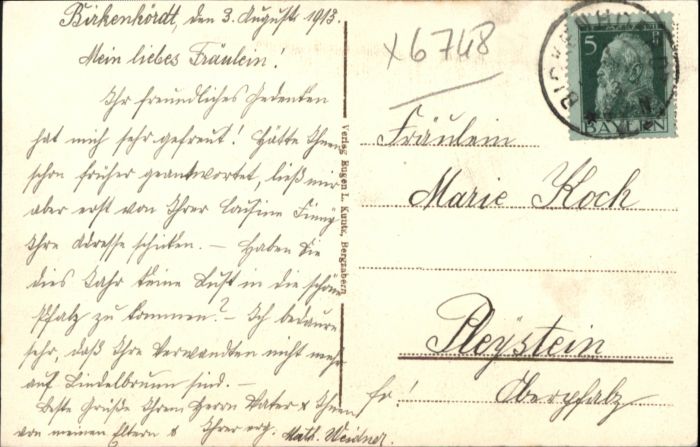 Birkenhördt, den 3. August 1913.
Mein liebes Fräulein!
Ihr freundliches Gedenken
hat mich sehr gefreut! Hätte Ihnen
schon früher geantwortet, ließ mir
aber erst von Ihrer Cousine Finny
Ihre Adresse schicken. — Haben Sie
dies Jahr keine Lust in die schöne
Pfalz zu kommen? — Ich bedaure
sehr, daß Ihre Verwandten nicht mehr
auf Lindelbrunn sind. —
Beste Grüße Ihrem Herrn Vater & Ihnen
von meinen Eltern & Ihrer erg. Math. Weidner.
fr!
Verlag Eugen L. Kuntz, Bergzabern
x6748
5 Pf
BAYERN
Fräulein
Marie Koch
Pleÿstein
Oberpfalz